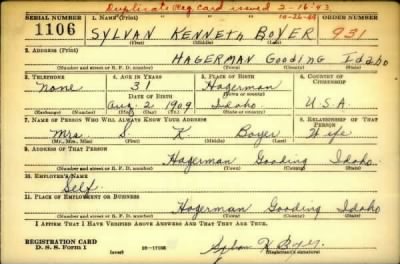 Duplicate Reg Card issued 2-16-43.
SERIAL NUMBER 1. NAME (Print) 10-26-44 ORDER NUMBER
1106 SYLVAN KENNETH BOYER 931
(First) (Middle) (Last)
2. ADDRESS (Print)
HAGERMAN Gooding Idaho
(Number and street or R. F. D. number) (Town) (County) (State)
3. TELEPHONE 4. AGE IN YEARS 5. PLACE OF BIRTH 6. COUNTRY OF CITIZENSHIP
none 31 Hagerman
DATE OF BIRTH (Town or county)
Aug. 2 1909 Idaho U.S.A.
(Exchange) (Number) (Mo.) (Day) (Yr.) (State or country)
7. NAME OF PERSON WHO WILL ALWAYS KNOW YOUR ADDRESS 8. RELATIONSHIP OF THAT PERSON
Mrs. S. K. Boyer Wife
(Mr., Mrs., Miss) (First) (Middle) (Last)
9. ADDRESS OF THAT PERSON
Hagerman Gooding Idaho.
(Number and street or R. F. D. number) (Town) (County) (State)
10. EMPLOYER'S NAME
Self
11. PLACE OF EMPLOYMENT OR BUSINESS
Hagerman Gooding Idaho
(Number and street or R. F. D. number) (Town) (County) (State)
I AFFIRM THAT I HAVE VERIFIED ABOVE ANSWERS AND THAT THEY ARE TRUE.
REGISTRATION CARD
D. S. S. Form 1 (over) 16-17105 Sylvan K Boyer
(Registrant's signature)